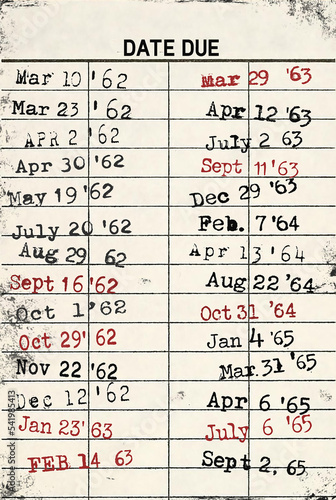 DATE DUE
Mar 10 '62
Mar 23 '62
APR 2 '62
Apr 30 '62
May 19 '62
July 20 '62
Aug 29 62
Sept 16 '62
Oct 1 '62
Oct 29' 62
Nov 22 '62
Dec 12 '62
Jan 23' 63
FEB 14 63
Mar 29 '63
Apr 12 '63
July 2 63
Sept 11 '63
Dec 29 '63
Feb. 7 '64
Apr 13 '64
Aug 22 '64
Oct 31 '64
Jan 4 '65
Mar. 31 '65
Apr 6 '65
July 6 '65
Sept 2, 65
Adobe Stock | #541985413